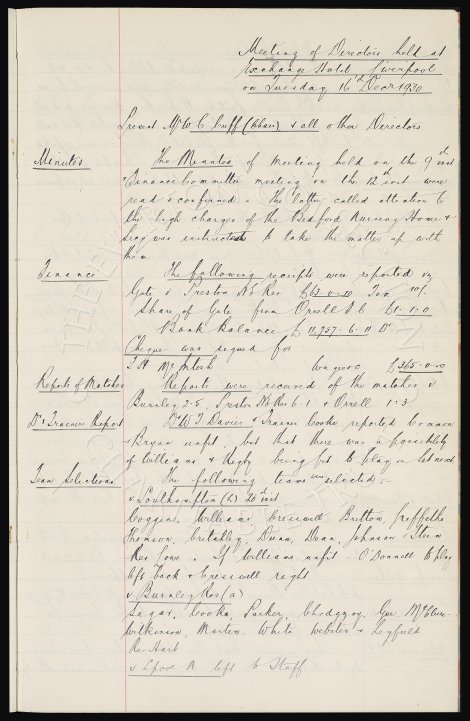 Meeting of Directors held at
Exchange Hotel Liverpool
on Tuesday 16th Decr 1930
Present Mr W C Cuff (Chair) & all other Directors
Minutes
The Minutes of meeting held on the 9th inst
& Finance Committee meeting on the 12th inst were
read & confirmed. The latter called attention to
the high charges of the Bedford Nursing Home &
Secy was instructed to take the matter up with
them
Finance
The following receipts were reported viz
Gate v Preston N.E. Res £63.0.10 Tax
Share of Gate from Orrell F C £1.1.0
Bank Balance £11,757.6.11 Dr
Cheque was signed for
T H McIntosh Wages £365.0.0
Reports of Matches
Reports were received of the matches v
Burnley 2-5, Preston N.E. Res 6-1 & Orrell 1-3
Dr & Trainers Report
Dr W F Davies & Trainer Cooke reported Common
& Bryan unfit but that there was a possibility
of Williams & Rigby being fit to play on Sat next
Team Selections
The following teams were selected:-
v Southampton (h) 20th inst
Coggins, Williams Cresswell Britton, Griffiths
Thomson, Critchley, Dunn, Dean, Johnson & Stein
Res. If Williams unfit O'Donnell to play
left back & Cresswell right
v Burnley Res (a)
Sagar, Cooke, Parker, Chedgzoy, Gee, McClure
Wilkinson, Martin, White Webster & Leyfield
v Lpool A left to Staff